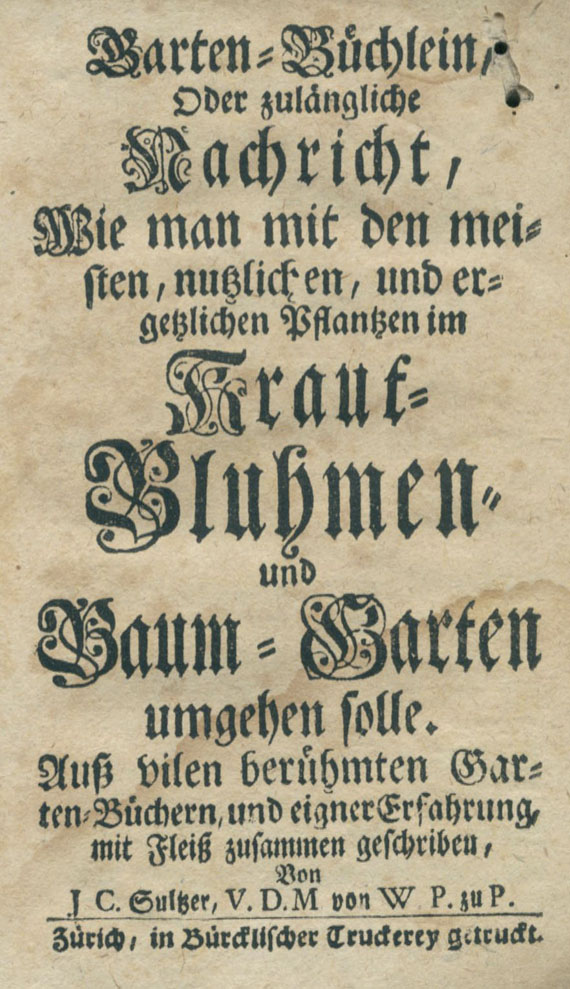 Garten-Büchlein,
Oder zulängliche
Nachricht,
Wie man mit den mei-
sten, nutzlichen, und er-
getzlichen Pflantzen im
Kraut-
Bluhmen-
und
Baum-Garten
umgehen solle.
Auß vilen berühmten Gar-
ten-Büchern, und eigner Erfahrung,
mit Fleiß zusammen geschriben,
Von
J C. Sultzer, V. D. M von W P. zu P.
Zürich, in Bürcklischer Truckerey getruckt.